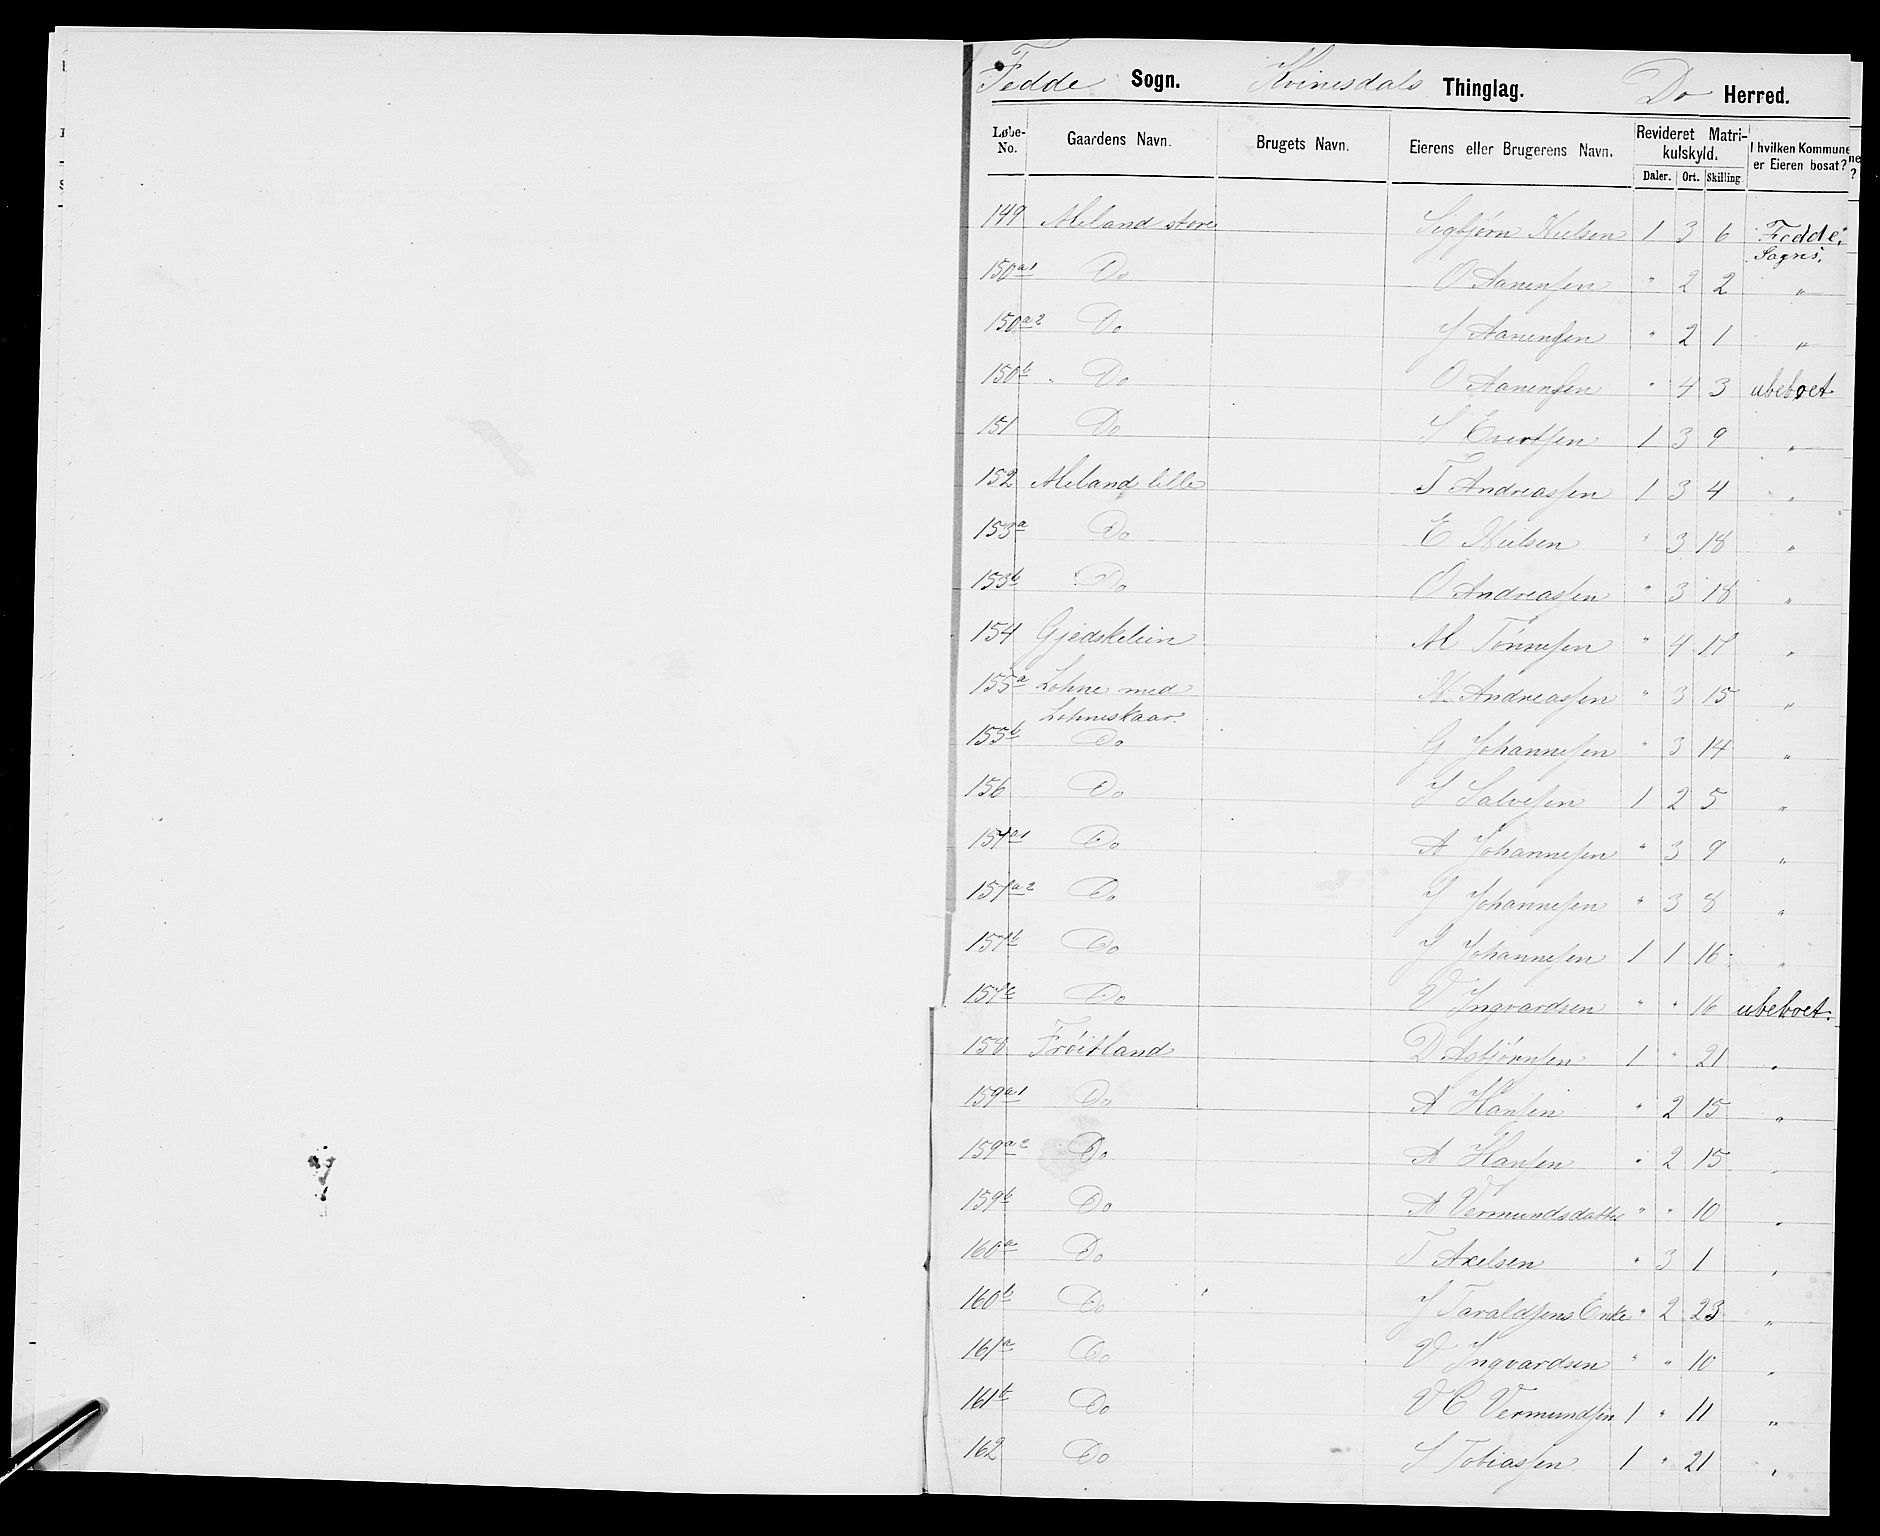 Fedde Sogn. Kvinesdals Thinglag. Do Herred.
Løbe-No. Gaardens Navn. Brugets Navn. Eierens eller Brugerens Navn. Revideret Matrikulskyld. I hvilken Kommune er Eieren bosat?
Daler. Ort. Skilling
149 Meland store Sigbjørn Nielsen 1 3 6 Fedde Sogns.
150a1 Do O Aanensen " 2 2 "
150a2 Do J Aanensen " 2 1 "
150b Do O Aanensen " 4 3 ubeboet
151 Do S Evertsen 1 3 9 "
152 Meland lille T Andreassen 1 3 4 "
153a Do E Nielsen " 3 18 "
153b Do O Andreassen " 3 18 "
154 Gjedskeлein M Tønnesen " 4 17 "
155a Lohne med Lohneskaar. N. Andreassen " 3 15 "
155b Do G Johannesen " 3 14 "
156 Do J Salvesen 1 2 5 "
157a1 Do A Johannesen " 3 9 "
157a2 Do J Johannesen " 3 8 "
157b Do J Johannesen 1 1 16 "
157c Do V Ingvardsen " " 16 ubeboet.
158 Frøitland D Asbjørnsen 1 " 21 "
159a1 Do A Hansen " 2 15 "
159a2 Do A Hansen " 2 15 "
159b Do A Vermundsdatter " " 10 "
160a Do T Axelsen " 3 1 "
160b Do J Taraldsens Enke " 2 23 "
161a Do V Ingvardsen " " 10 "
161b Do V C Vermundsen 1 " 11 "
162 Do S Tobiassen 1 " 21 "